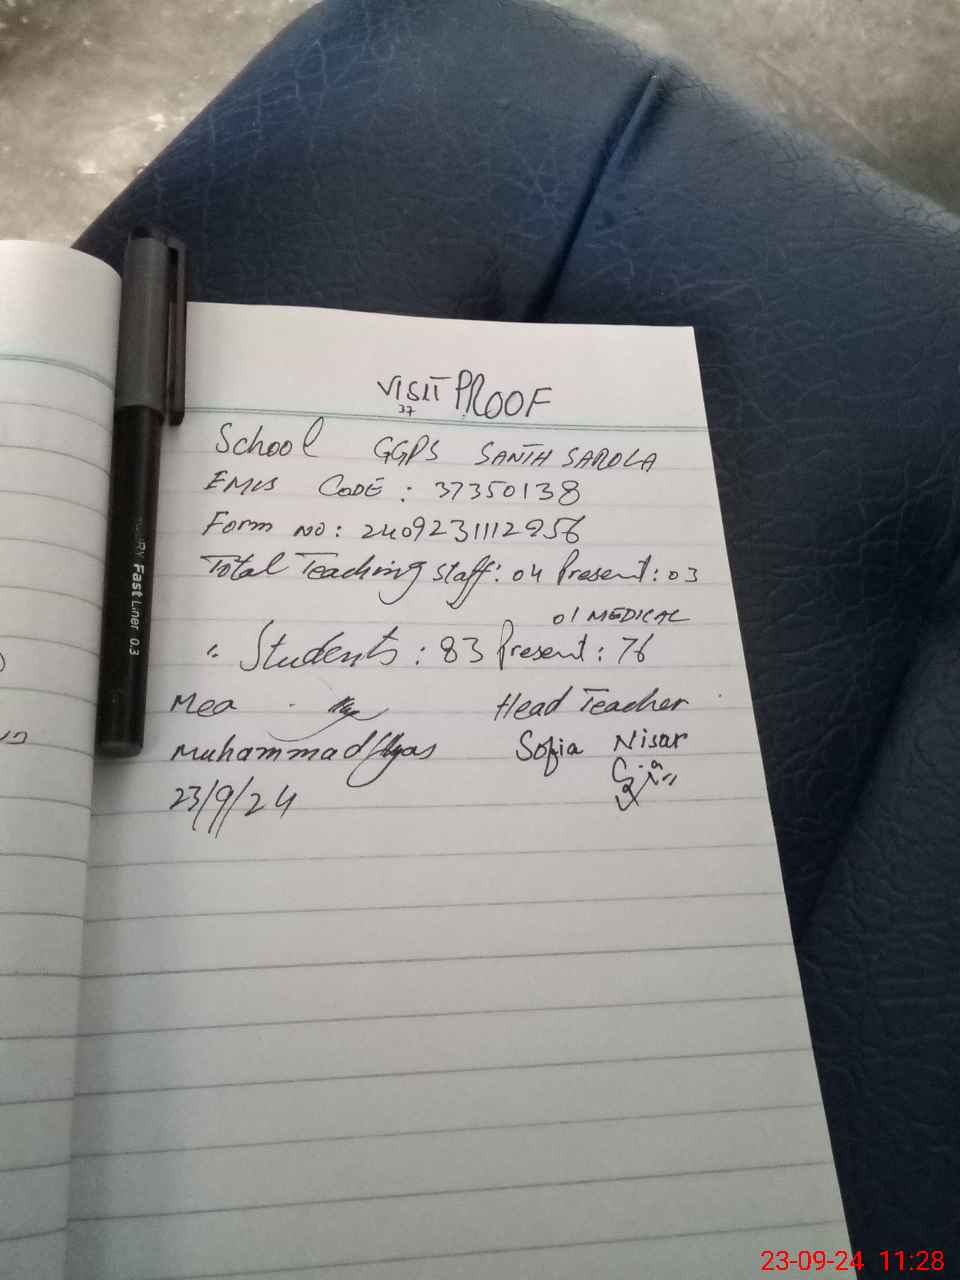 VISIT PROOF
37
School GGPS SANTH SAROLA
EMIS CODE : 37350138
Form NO: 2409231112956
Total Teaching staff: 04 Present: 03
01 MEDICAL
" Students : 83 Present : 76
Mea Head Teacher
Muhammad Ilyas Sofia Nisar
23/9/24
Fast Liner 0.3
23-09-24 11:28